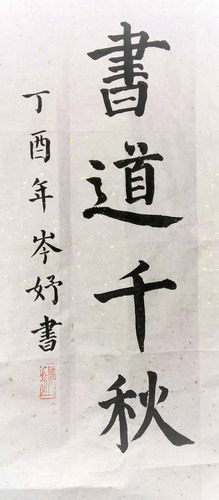 書道千秋
丁酉年岑妤書